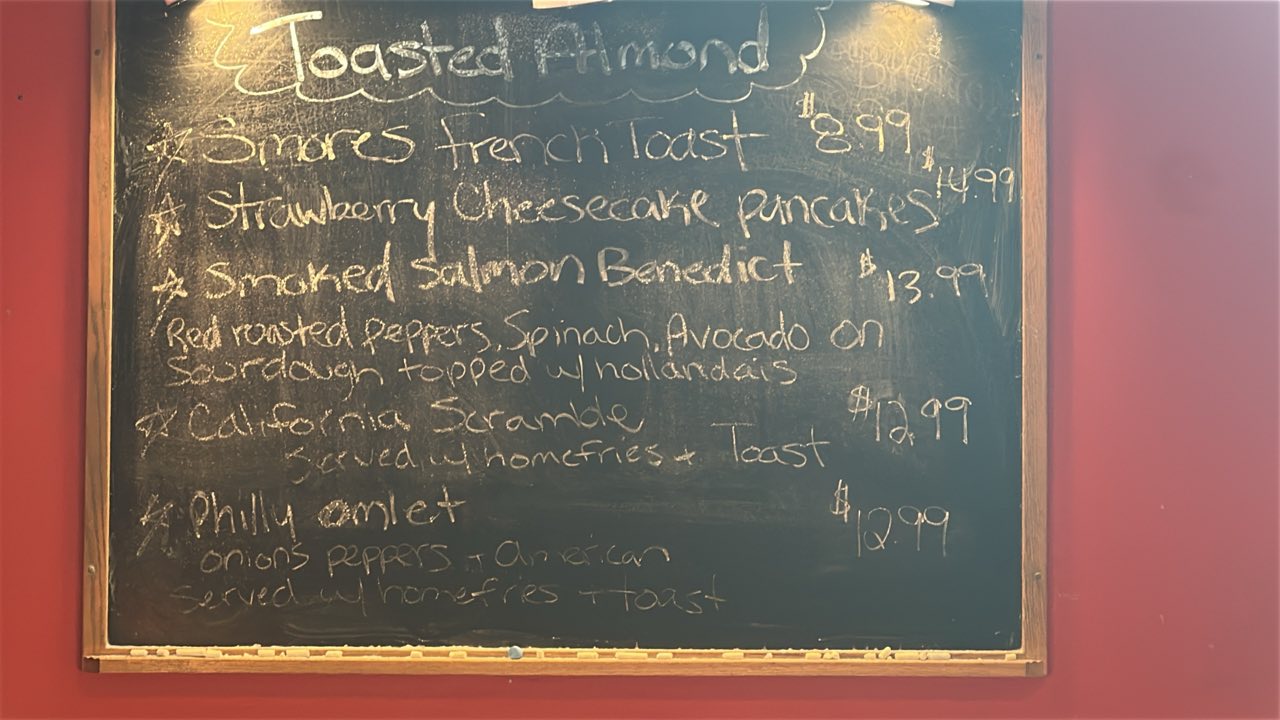 Toasted Almond
☆ Smores French Toast $8.99
☆ Strawberry Cheesecake pancakes $14.99
☆ Smoked Salmon Benedict $13.99
Red roasted peppers, Spinach, Avocado on
Sourdough topped w/ hollandais
☆ California Scramble $12.99
Served w/ homefries + Toast
☆ Philly omlet $12.99
onions peppers + American
Served w/ homefries + toast